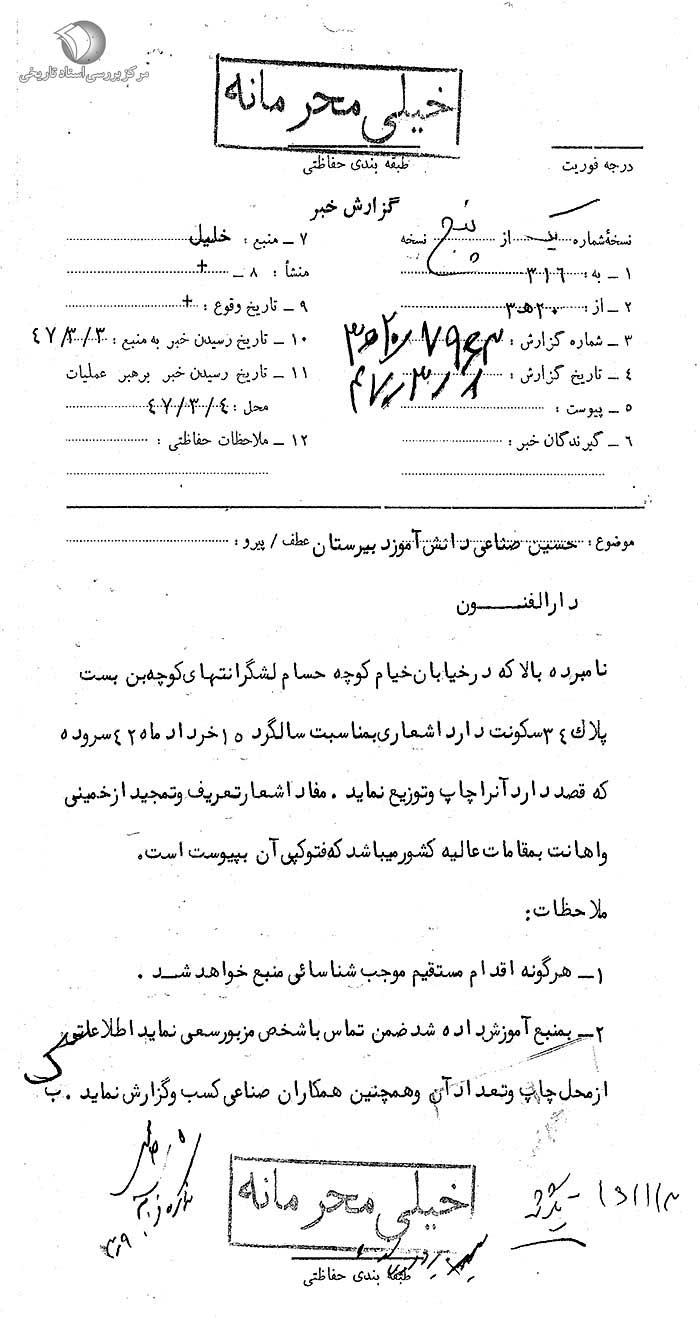 مرکز بررسی اسناد تاریخی
خیلی محرمانه
طبقه بندی حفاظتی
درجه فوریت
گزارش خبر
نسخهٔ شماره یک از پنج نسخه
۱ ـ به : ۳۱٦
۲ ـ از : ۲۰ ھ ۳
۳ ـ شماره گزارش :
۴ ـ تاریخ گزارش : ۴۷/۳/۸
۵ ـ پیوست :
۶ ـ گیرندگان خبر :
۷ ـ منبع : خلیل
۸ ـ منشأ : +
۹ ـ تاریخ وقوع : +
۱۰ ـ تاریخ رسیدن خبر به منبع : ۴۷/۳/۳
۱۱ ـ تاریخ رسیدن خبر برهبر عملیات
محل : ٤۷/۳/٤
۱۲ ـ ملاحظات حفاظتی :
موضوع : حسین صناعی دانش آموزدبیرستان عطف / پیرو :
دارالفنـــون
نامبرده بالا که درخیابان خیام کوچه حسام لشگرانتهای کوچه بن بست
پلاك ۳٤ سکونت دارد اشعاری بمناسبت سالگرد ۱۵ خرداد ماه ٤۲ سروده
که قصد دارد آنرا چاپ وتوزیع نماید . مفاد اشعارتعریف وتمجید ازخمینی
واهانت بمقامات عالیه کشورمیباشد که فتوکپی آن بپیوست است.
ملاحظات:
۱ـ هرگونه اقدام مستقیم موجب شناسائی منبع خواهد شـد .
۲ـ بمنبع آموزش داده شد ضمن تماس با شخص مزبورسعی نماید اطلاعاتی
ازمحل چاپ وتعداد آن وهمچنین همکاران صناعی کسب وگزارش نماید . ب
خیلی محرمانه
طبقه بندی حفاظتی